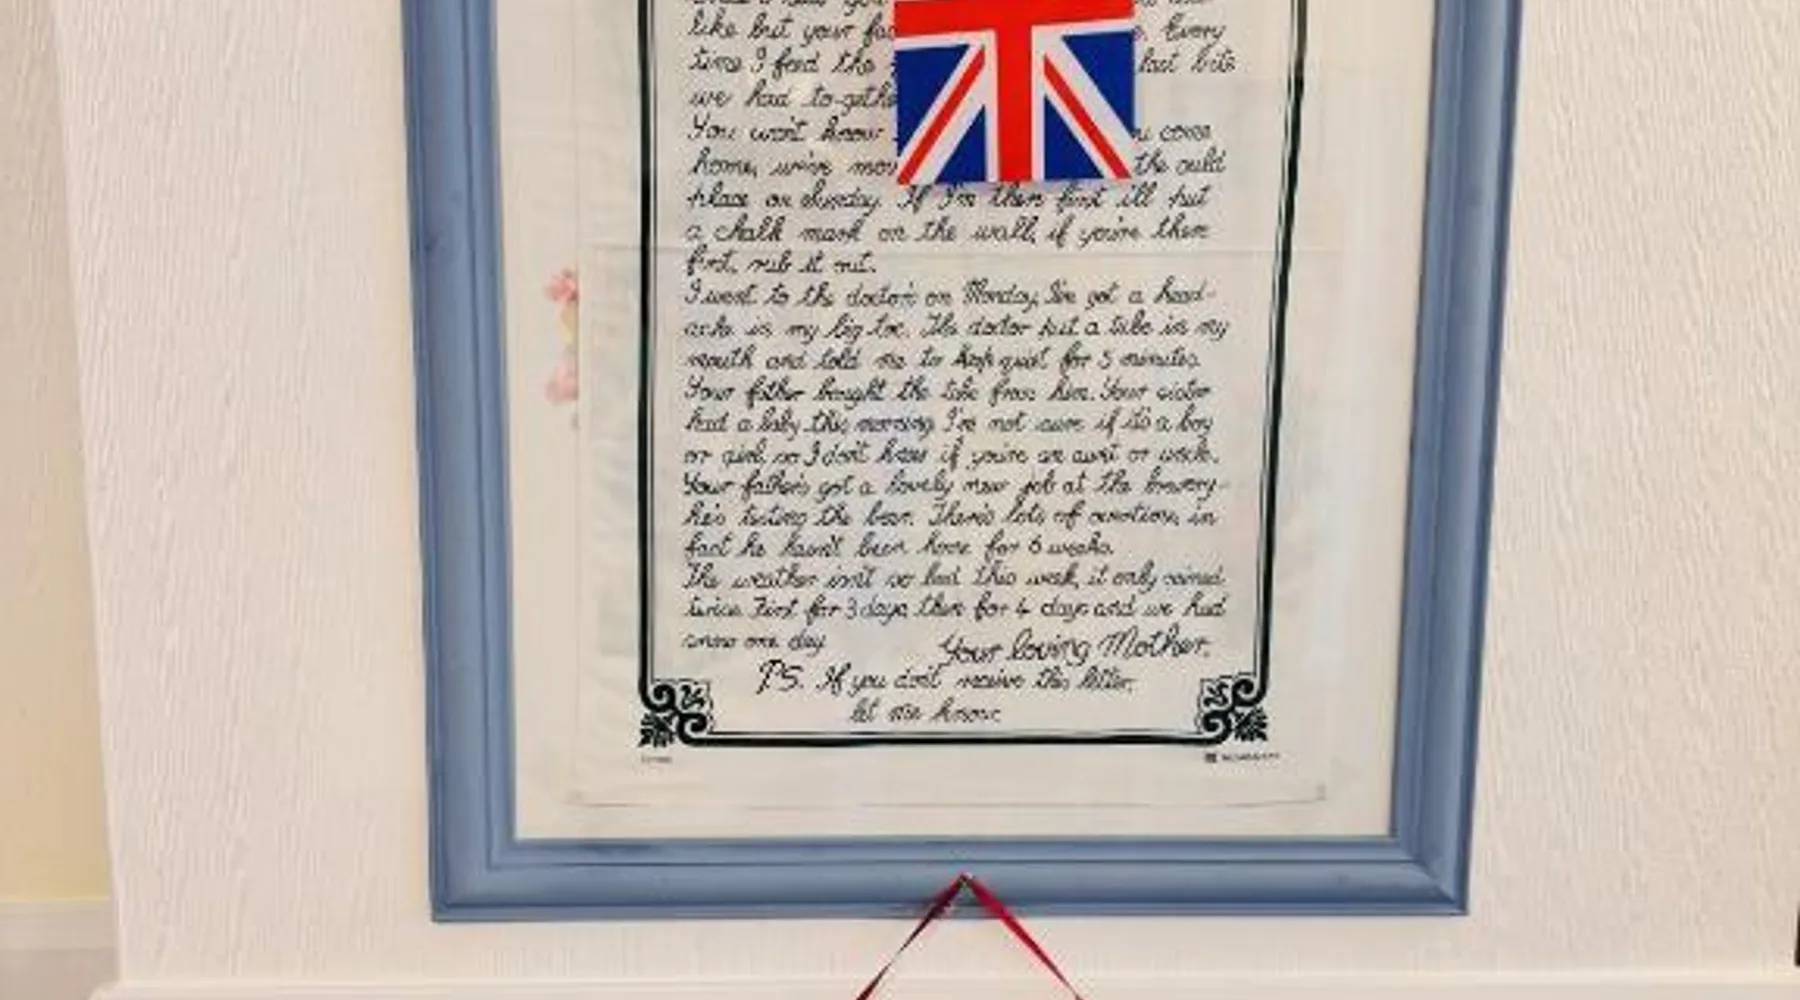 like but your
time I feed the last bite
we had to-geth
You won't know come
home, we've mov the ould
place on Sunday. If I'm there first ill put
a chalk mark on the wall, if you're there
first, rub it out.
I went to the doctor's on Monday, I've got a head-
ache in my big toe. The doctor put a tube in my
mouth and told me to keep quiet for 5 minutes.
Your father bought the tube from him. Your sister
had a baby this morning I'm not sure if it's a boy
or girl, so I don't know if you're an aunt or uncle.
Your father's got a lovely new job at the brewery-
he's testing the beer. There's lots of overtime, in
fact he hasn't been home for 6 weeks.
The weather isn't so bad this week, it only rained
twice. First for 3 days, then for 4 days and we had
snow one day
Your loving Mother.
P.S. If you don't receive this letter,
let me know.